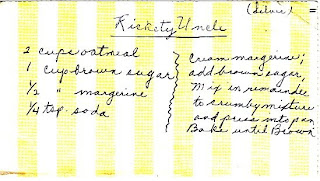 (Silvie)
Rickety Uncle
2 cups oatmeal
1 cup brown sugar
1/2 " margerine
1/4 tsp. soda
Cream margerine;
add brown sugar,
Mix in remainder
to crumby mixture
and press into pan
Bake until Brown